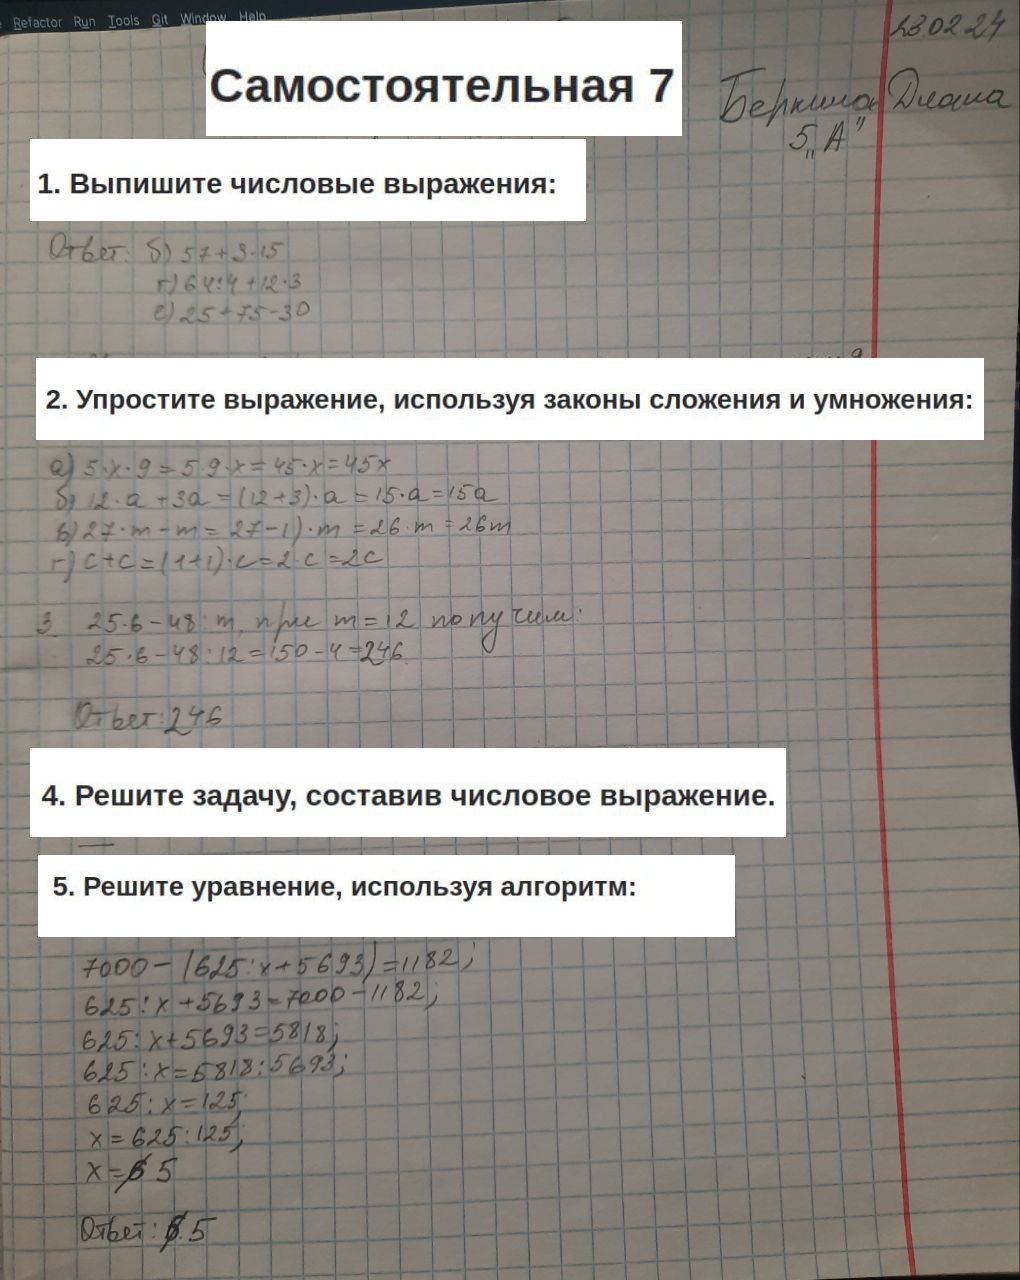 Refactor Run Tools Git Window Help
23.02.24
Самостоятельная 7
Диана
5 „А”
1. Выпишите числовые выражения:
Ответ: б) 57+3·15
г) 64:4+12·3
е) 25+75-30
2. Упростите выражение, используя законы сложения и умножения:
а) 5·х·9=5·9·х=45·х=45х
б) 12·а+3а=(12+3)·а=15·а=15а
в) 27·m-m=27-1)·m=26·m=26m
г) с+с=(1+1)·с=2·с=2с
3. 25·6-48:m, при m=12 получим:
25·6-48:12=150-4=246.
Ответ: 246
4. Решите задачу, составив числовое выражение.
5. Решите уравнение, используя алгоритм:
7000-(625:х+5693)=1182;
625:х+5693=7000-1182;
625:х+5693=5818;
625:х=5818:5693;
625:х=125;
х=625:125;
х=5
Ответ: 5